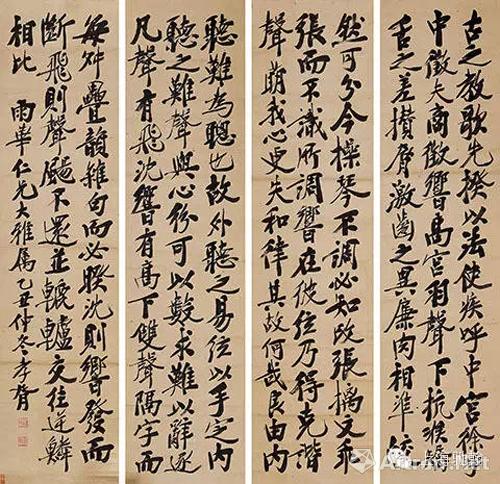 古之教歌先揆以法使疾呼中宮徐呼
中徵夫商徵響高宮羽聲下抗喉矯
舌之差攢脣激齒之異廉肉相準皎
然可分今操琴不調必知改張摛文乖
張而不識所調響在彼絃乃得克諧
聲萌我心更失和律其故何哉良由内
聽難為聰也故外聽之易絃以手定内
聽之難聲與心紛可以數求難以辭逐
凡聲有飛沈響有高下雙聲隔字而
每舛疊韻雜句而必睽沈則響發而
斷飛則聲颺不還並轆轤交往逆鱗
相比 雨華仁兄大雅屬 乙丑仲冬 孝胥